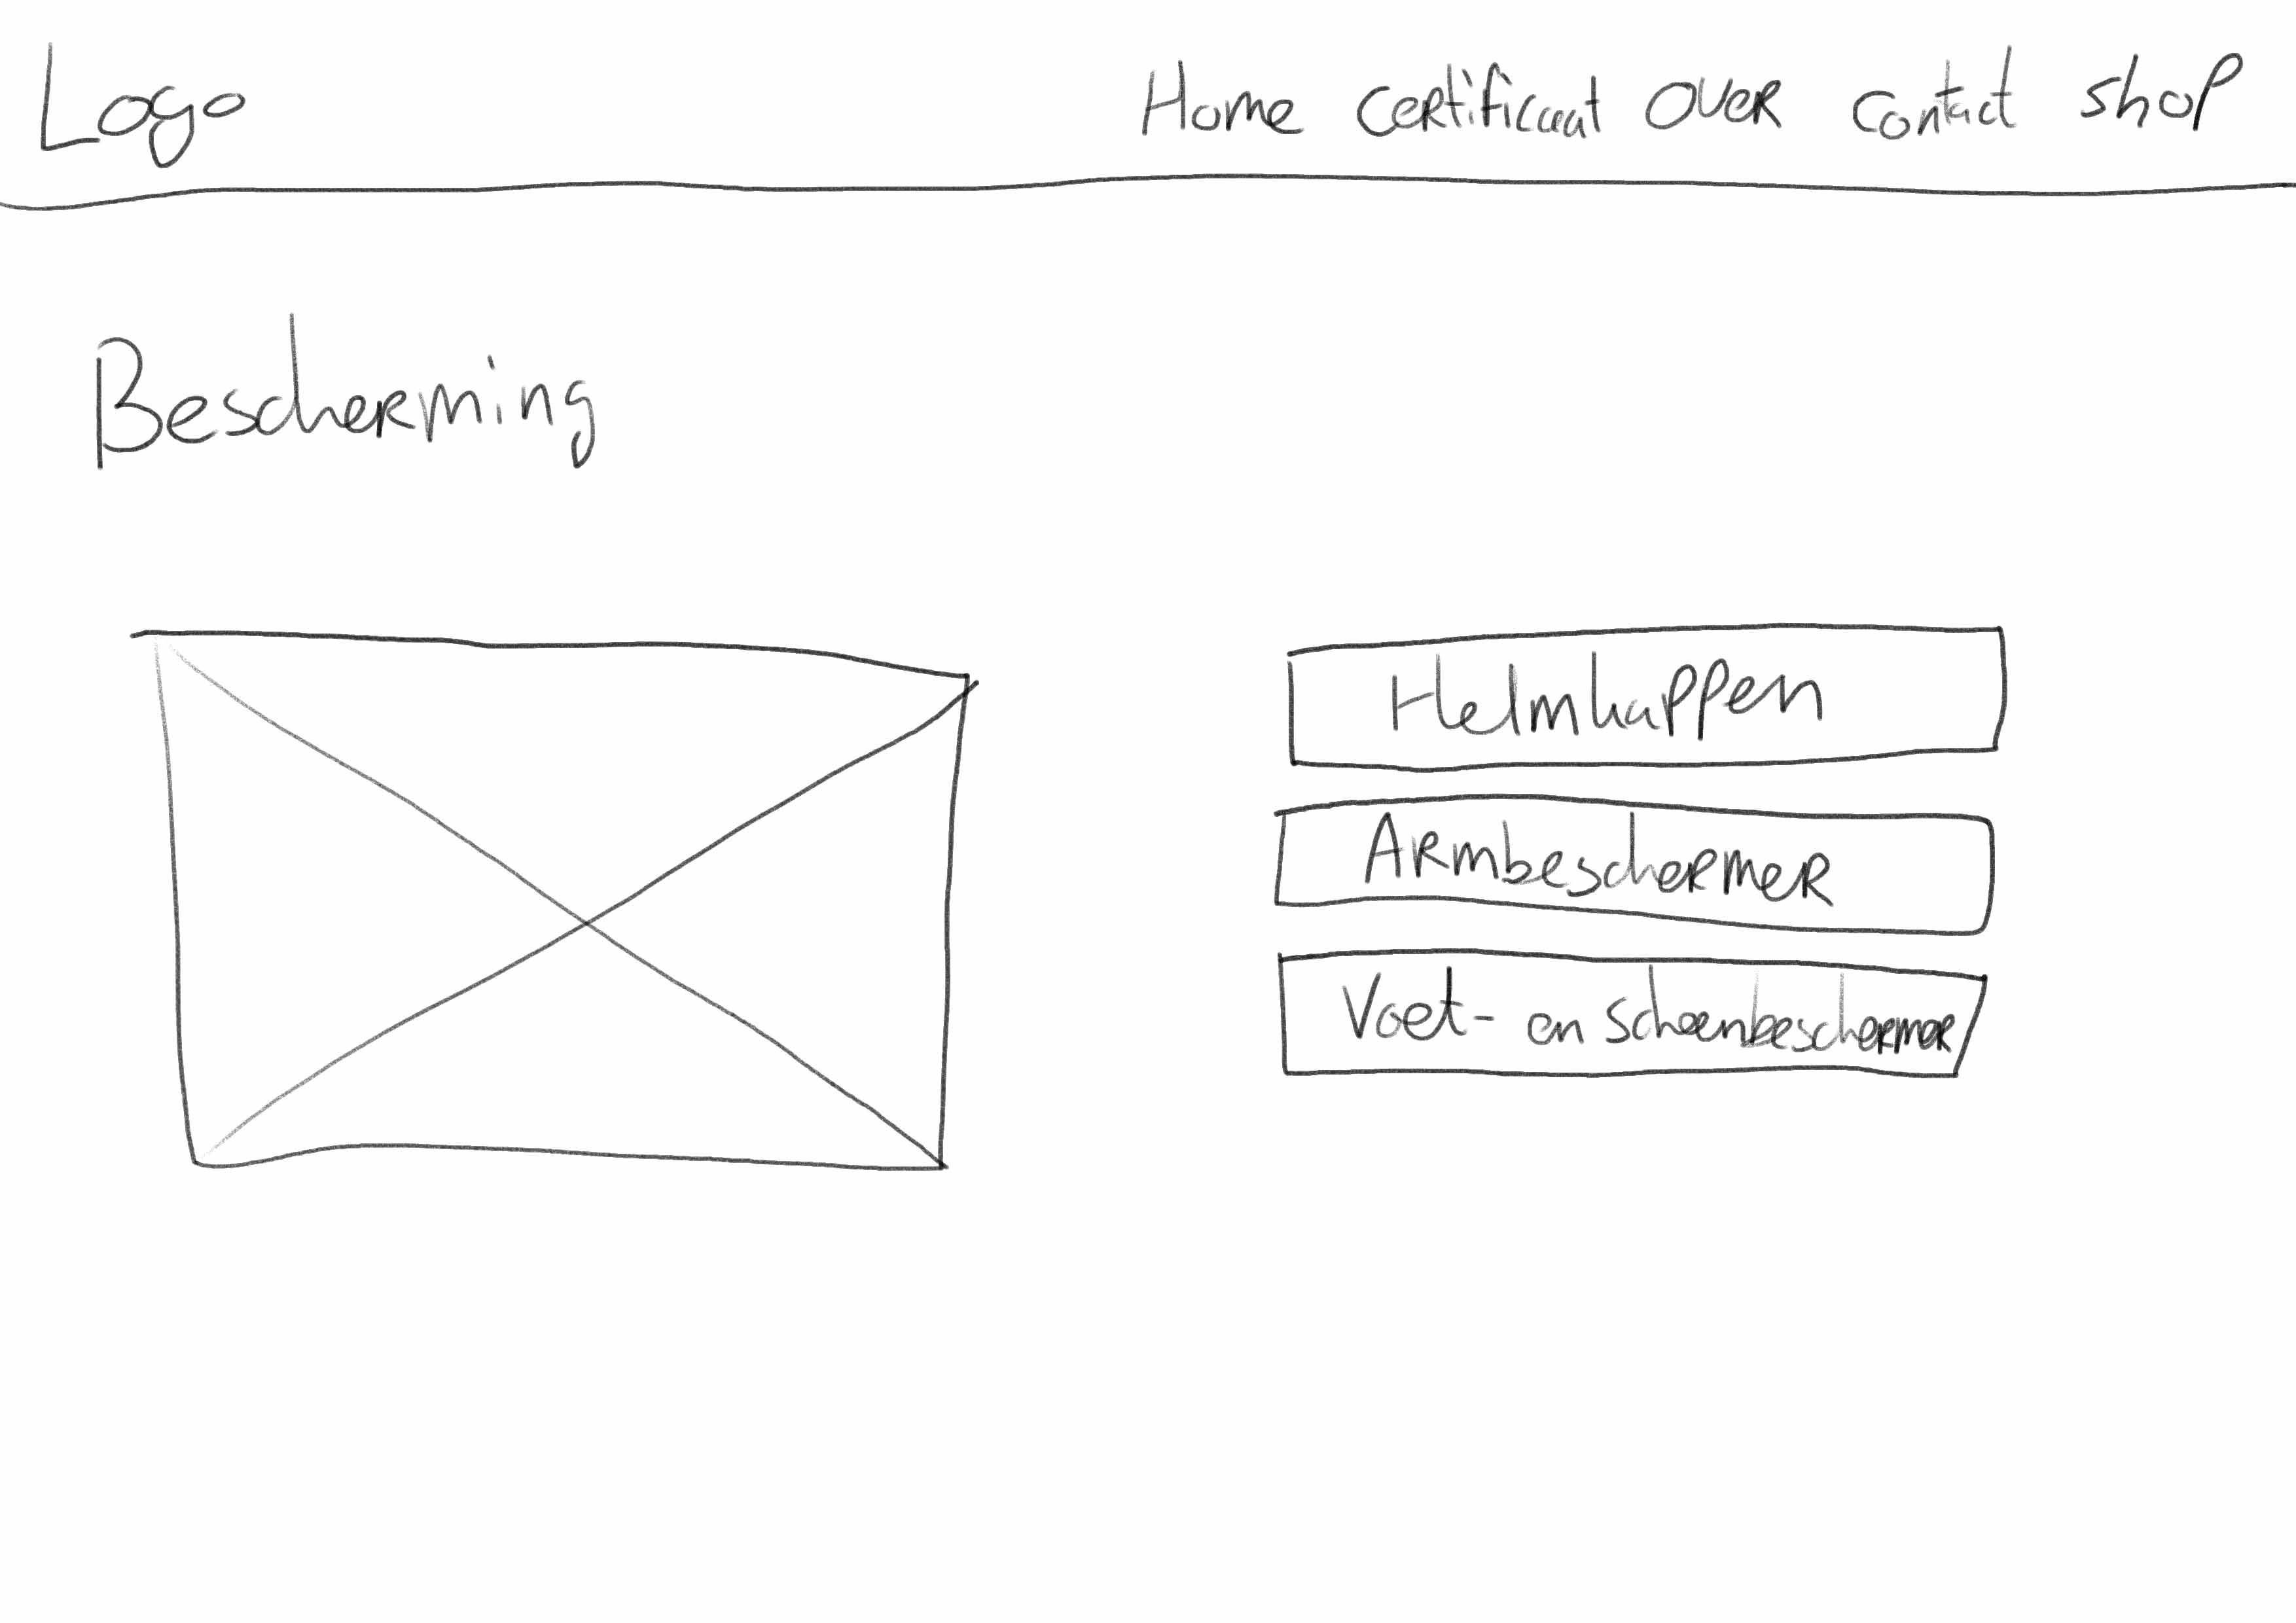 Logo
Home Certificaat Over Contact Shop
Bescherming
Helmkappen
Armbeschermer
Voet- en Scheenbeschermer